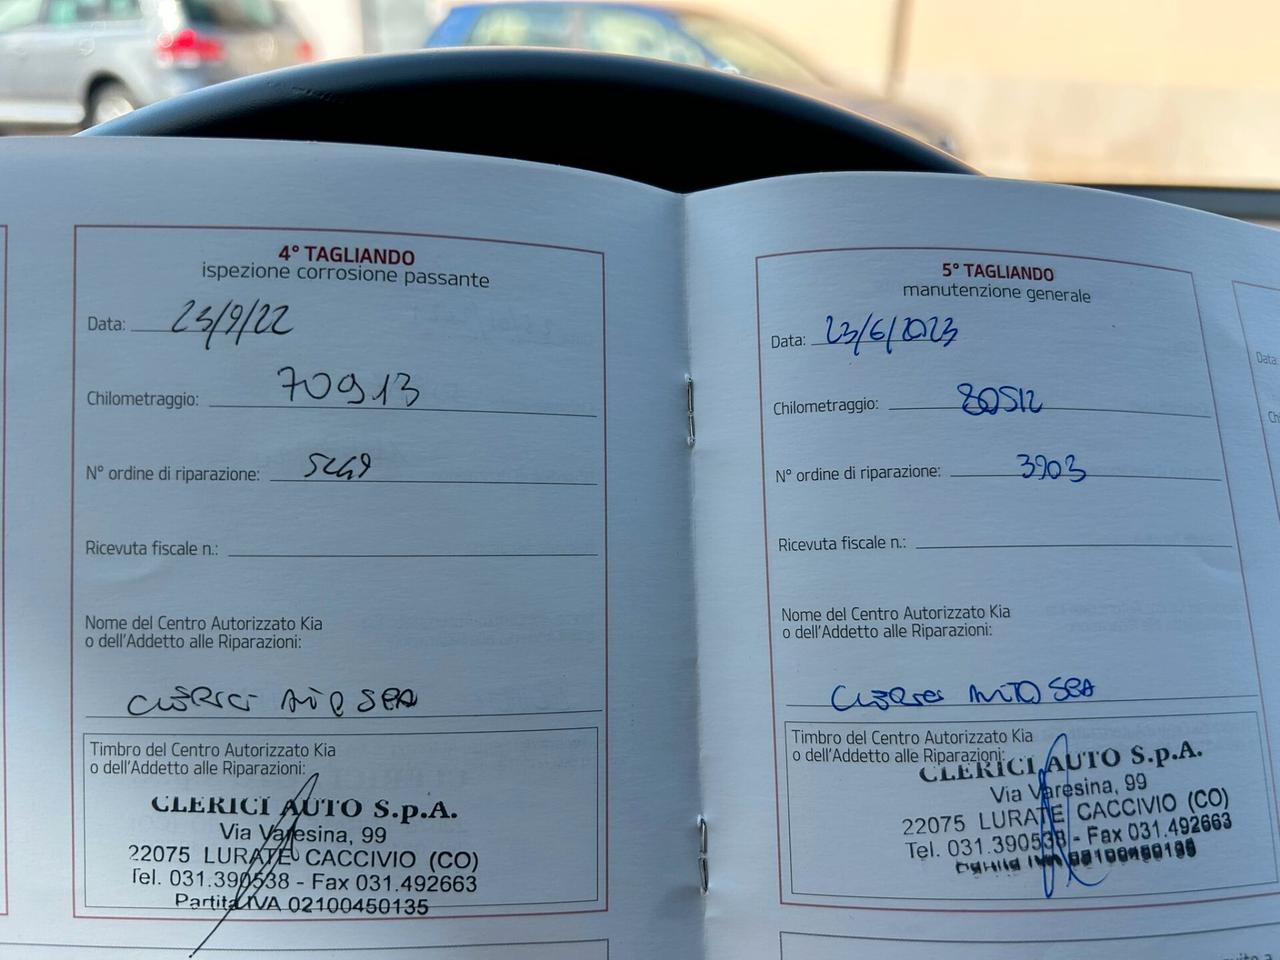 4° TAGLIANDO
ispezione corrosione passante
Data: 23/9/22
Chilometraggio: 70913
N° ordine di riparazione: 5449
Ricevuta fiscale n.:
Nome del Centro Autorizzato Kia
o dell'Addetto alle Riparazioni:
CLERICI AUTO SPA
Timbro del Centro Autorizzato Kia
o dell'Addetto alle Riparazioni:
CLERICI AUTO S.p.A.
Via Varesina, 99
22075 LURATE CACCIVIO (CO)
Tel. 031.390538 - Fax 031.492663
Partita IVA 02100450135
5° TAGLIANDO
manutenzione generale
Data: 23/6/2023
Chilometraggio: 80512
N° ordine di riparazione: 3903
Ricevuta fiscale n.:
Nome del Centro Autorizzato Kia
o dell'Addetto alle Riparazioni:
CLERICI AUTO SPA
Timbro del Centro Autorizzato Kia
o dell'Addetto alle Riparazioni:
CLERICI AUTO S.p.A.
Via Varesina, 99
22075 LURATE CACCIVIO (CO)
Tel. 031.390538 - Fax 031.492663
Partita IVA 02100450135
Data: